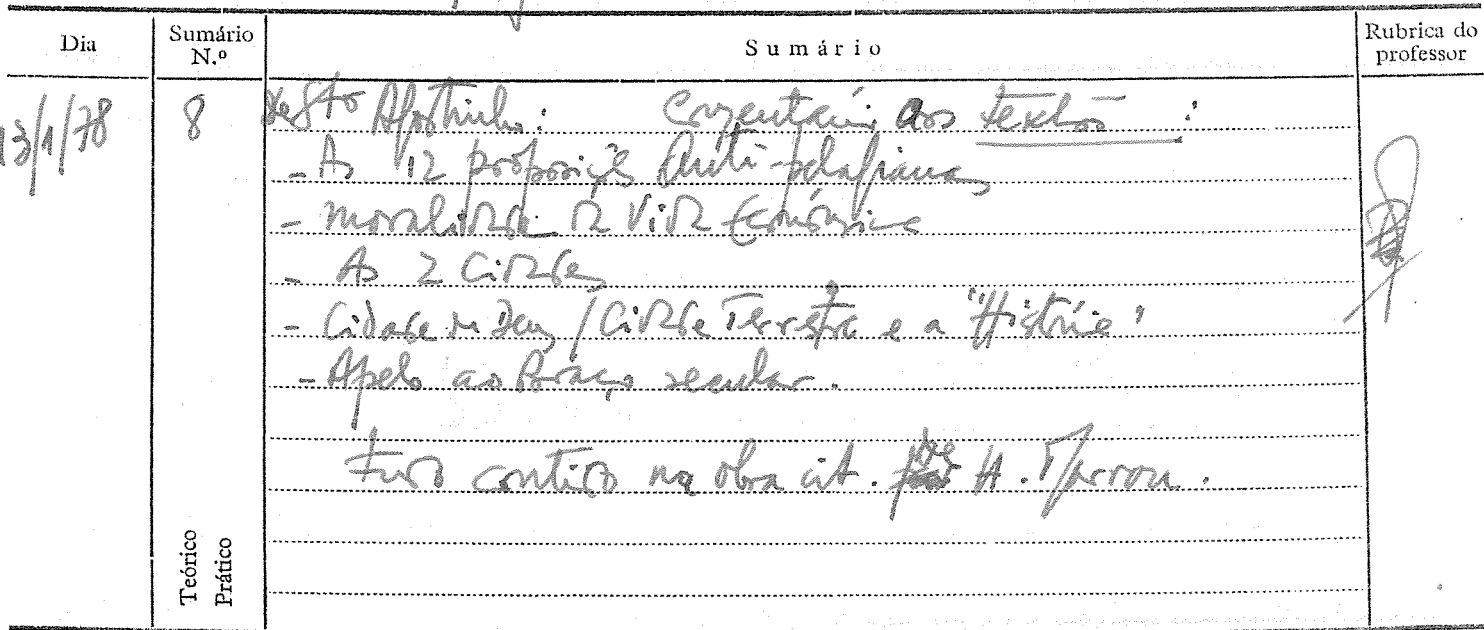 Dia
Sumário N.º
Sumário
Rubrica do professor
13/1/78
8
de Sto Agostinho: Comentário aos textos:
- As 12 proposições anti-pelagianas
- Moralidade da Vida Económica
- As 2 Cidades
- Cidade de Deus / Cidade Terrestre e a "História"
- Apelo ao Braço secular.
Tudo contido na obra cit. de H. Marrou.
Teórico
Prático